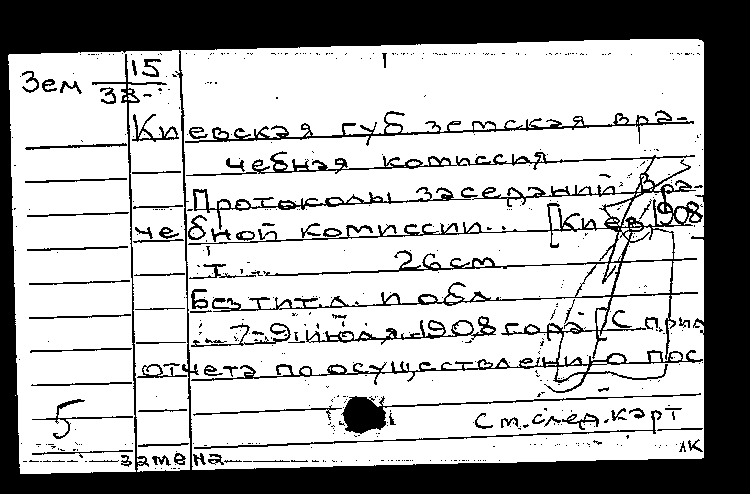 Зем 15
38-
Киевская губ земская вра-
чебная комиссия.
Протоколы заседаний Вра-
чебной комиссии... [Киев, 1908
т. ... 26 см.
Без тит. л. и обл.
... 7-9 июля 1908 года [С прил
отчета по осуществлению пос
5
См. след. карт
замена
АК